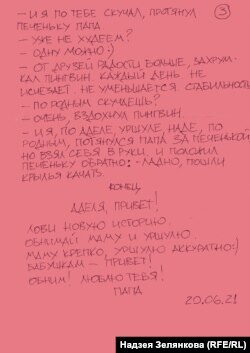 – И Я ПО ТЕБЕ СКУЧАЛ, ПРОТЯНУЛ
ПЕЧЕНЬКУ ПАПА.
– УЖЕ НЕ ХУДЕЕМ?
– ОДНУ МОЖНО:)
– ОТ ДРУЗЕЙ РАДОСТИ БОЛЬШЕ, ЗАХРУМ-
КАЛ ПИНГВИН. КАЖДЫЙ ДЕНЬ. НЕ
ИСЧЕЗАЕТ. НЕ УМЕНЬШАЕТСЯ. СТАБИЛЬНОСТЬ.
– ПО РОДНЫМ СКУЧАЕШЬ?
– ОЧЕНЬ, ВЗДОХНУЛ ПИНГВИН.
– И Я, ПО АДЕЛЕ, УРШУЛЕ, НАДЕ, ПО
РОДНЫМ, ПОТЯНУЛСЯ ПАПА ЗА ПЕЧЕНЬКОЙ
НО ВЗЯЛ СЕБЯ В РУКИ И ПОЛОЖИЛ
ПЕЧЕНЬКУ ОБРАТНО: – ЛАДНО, ПОШЛИ
КРЫЛЬЯ КАЧАТЬ.
КОНЕЦ.
АДЕЛЯ, ПРИВЕТ!
ЛОВИ НОВУЮ ИСТОРИЮ.
ОБНИМАЙ МАМУ И УРШУЛЮ.
МАМУ КРЕПКО, УРШУЛЮ АККУРАТНО:)
БАБУШКАМ – ПРИВЕТ!
ОБНИМ! ЛЮБЛЮ ТЕБЯ!
ПАПА
20.06.21
3
Надзея Зелянкова (RFE/RL)